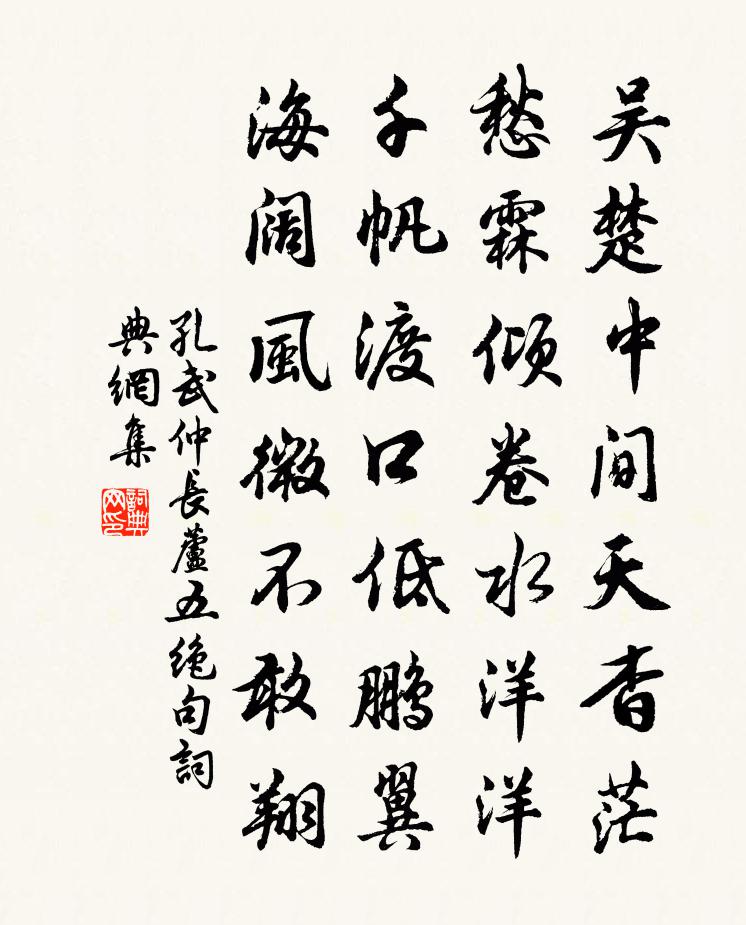 吴楚中间天杳茫
愁霖倾卷水洋洋
千帆渡口低鵬翼
海阔風微不敢翔
孔武仲長蘆五绝句詞
典網集
詞典
网印